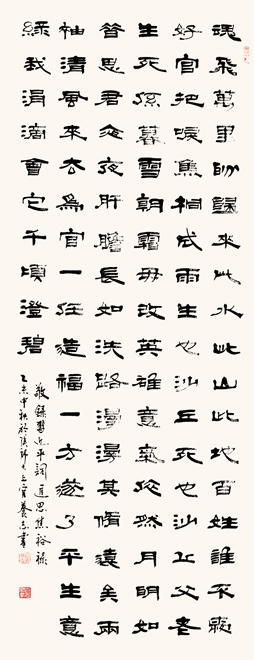 魂飛萬里盼歸來此水此山此地百姓誰不愛
好官把淚焦桐成雨生也沙丘死也沙丘父老
生死系暮雪朝霜毋改英雄意氣依然月明如
昔思君夜夜肝膽長如洗路漫漫其脩遠矣兩
袖清風來去爲官一任造福一方遂了平生意
綠我涓滴會它千頃澄碧
敬錄習近平詞追思焦裕祿
乙未中秋於師上官養志書